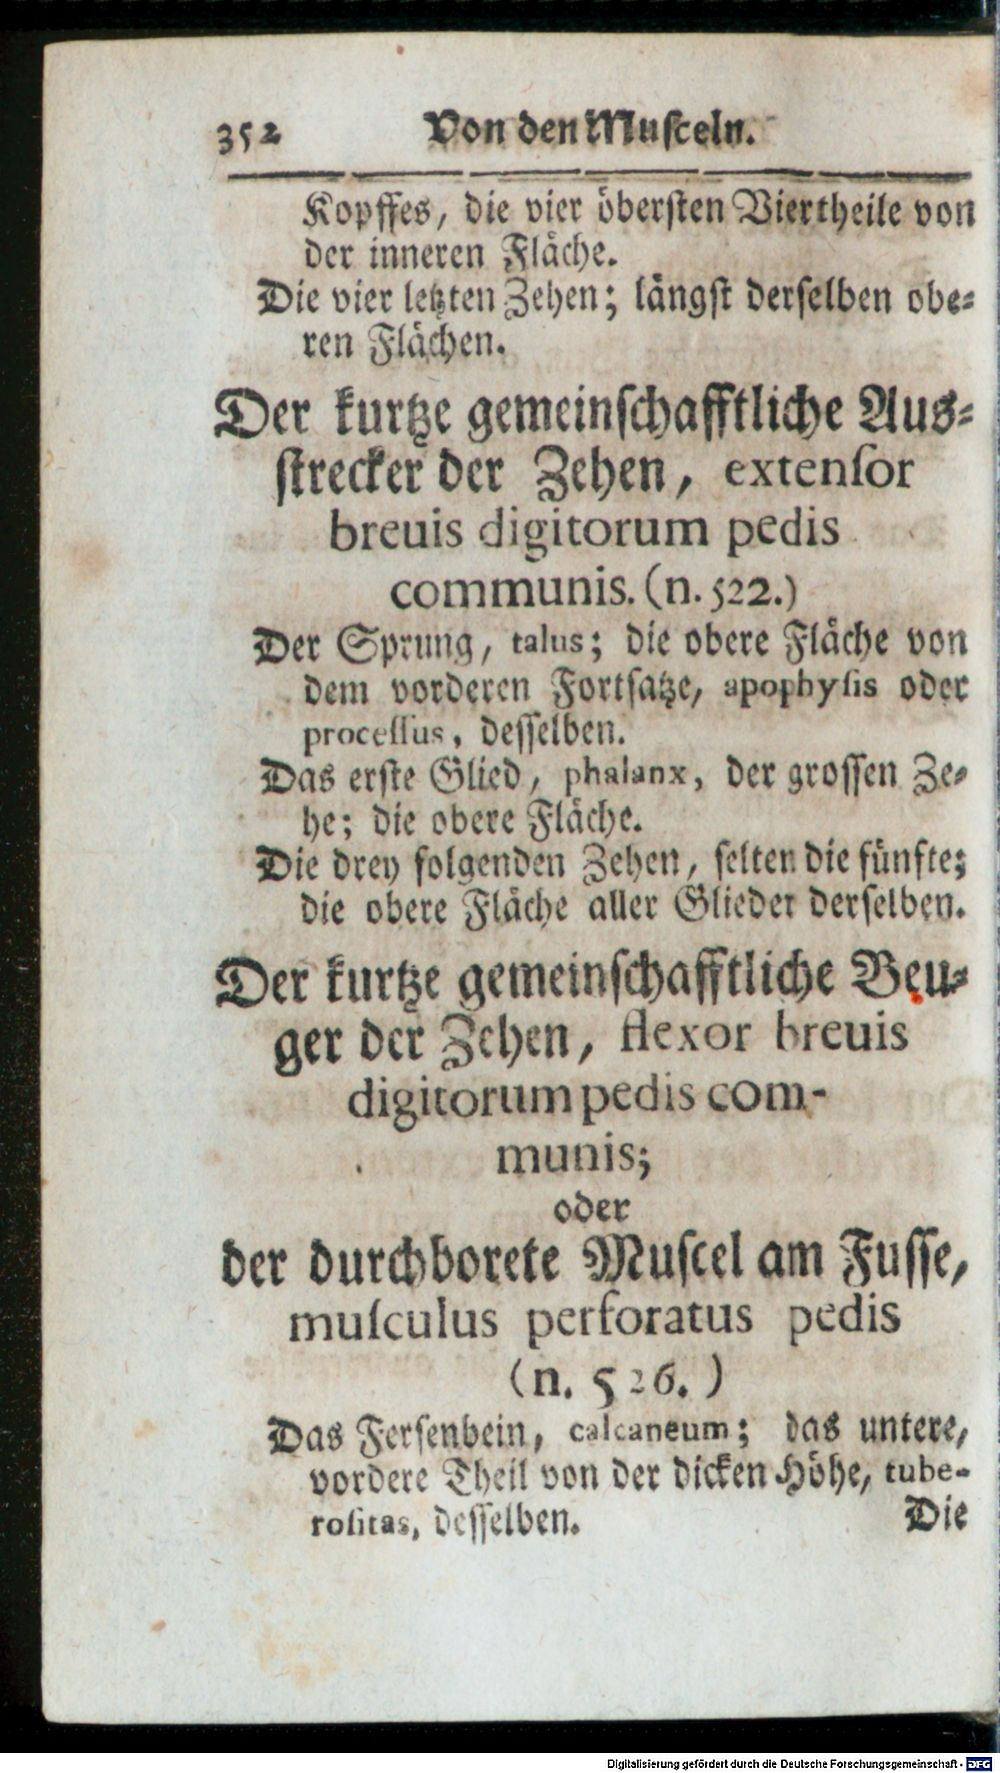 352 Von den Muſceln.
Kopffes, die vier öberſten Viertheile von
der inneren Fläche.
Die vier letzten Zehen; längſt derſelben obe-
ren Flächen.
Der kurtze gemeinſchafftliche Aus-
ſtrecker der Zehen, extenſor
breuis digitorum pedis
communis. (n. 522.)
Der Sprung, talus; die obere Fläche von
dem vorderen Fortſatze, apophyſis oder
proceſſus, deſſelben.
Das erſte Glied, phalanx, der groſſen Ze-
he; die obere Fläche.
Die drey folgenden Zehen, ſelten die fünfte;
die obere Fläche aller Glieder derſelben.
Der kurtze gemeinſchafftliche Beu-
ger der Zehen, flexor breuis
digitorum pedis com-
munis;
oder
der durchborete Muſcel am Fuſſe,
muſculus perforatus pedis
(n. 526.)
Das Ferſenbein, calcaneum; das untere,
vordere Theil von der dicken Höhe, tube-
roſitas, deſſelben.
Die
Digitalisierung gefördert durch die Deutsche Forschungsgemeinschaft - DFG